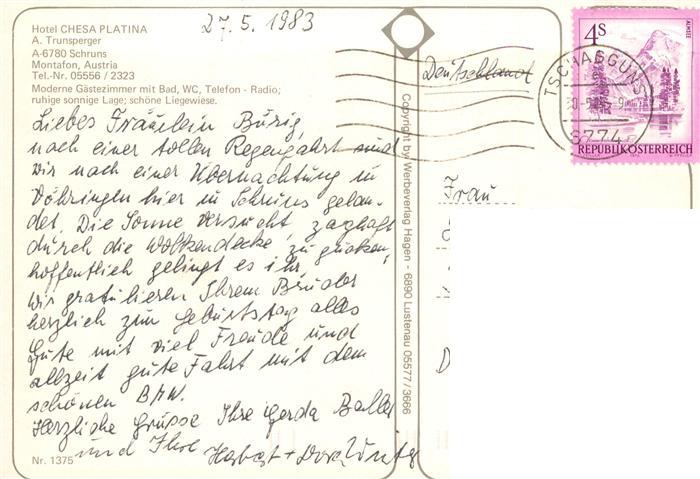 Hotel CHESA PLATINA
A. Trunsperger
A-6780 Schruns
Montafon, Austria
Tel.-Nr. 05556 / 2323
Moderne Gästezimmer mit Bad, WC, Telefon - Radio;
ruhige sonnige Lage; schöne Liegewiese.
27. 5. 1983
Liebes Fräulein Burig,
nach einer tollen Regenfahrt sind
wir nach einer Übernachtung in
Vöhringen hier in Schruns gelan-
det. Die Sonne versucht zaghaft
durch die Wolkendecke zu gucken,
hoffentlich gelingt es ihr.
Wir gratulieren Ihrem Bruder
herzlich zum Geburtstag alles
Gute mit viel Freude und
allzeit gute Fahrt mit dem
schönen BMW.
Herzliche Grüsse Ihre Gerda
und Ihre
Nr. 1375
Copyright by Werbeverlag Hagen - 6890 Lustenau 05577/3666
Deutschland
4S
ALMSEE
REPUBLIK ÖSTERREICH
TSCHAGGUNS
6774
Frau
D